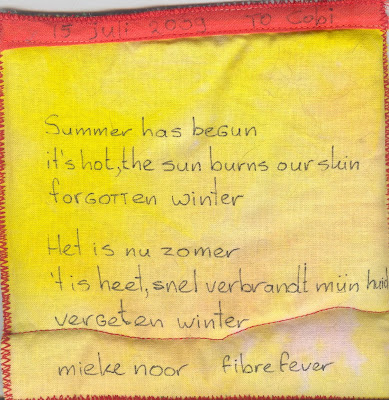 15 juli 2009 TO Cobi
Summer has begun
it's hot, the sun burns our skin
forgotten winter
Het is nu zomer
't is heet, snel verbrandt mijn huid
vergeten winter
mieke noor fibre fever